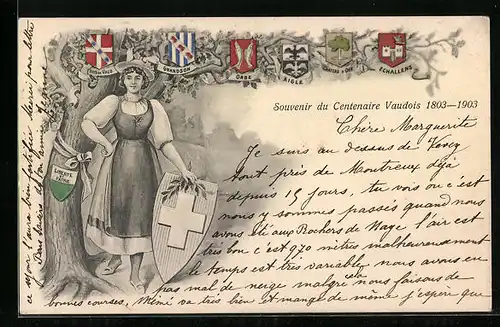 PAYS DE VAUD
GRANDSON
ORBE
AIGLE
ECHALLENS
LIBERTÉ
ET
PATRIE
Souvenir du Centenaire Vaudois 1803—1903
Chère Marguerite
Je suis au dessus de
tout près de Montreux déjà
depuis 15 jours, tu vois ou c'est
nous y sommes passés quand nous
avons été aux Rochers de Naye l'air est
très bon c'est 970 mètres malheureusement
le temps est très variable nous avons eu
pas mal de neige malgré cela nous faisons de
bonnes courses. Mémé va très bien et mange de même j'espère que